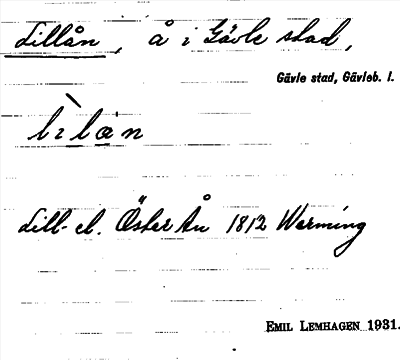 Lillån, å i Gävle stad,
Gävle stad, Gävleb. l.
lìlan
Lill- el. Öster Ån 1812 Warming
EMIL LEMHAGEN 1931.